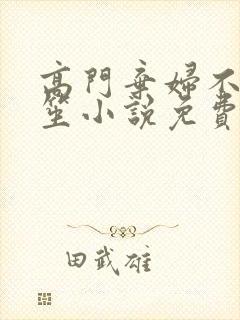 高門棄婦不
笙小說免費
田武雄